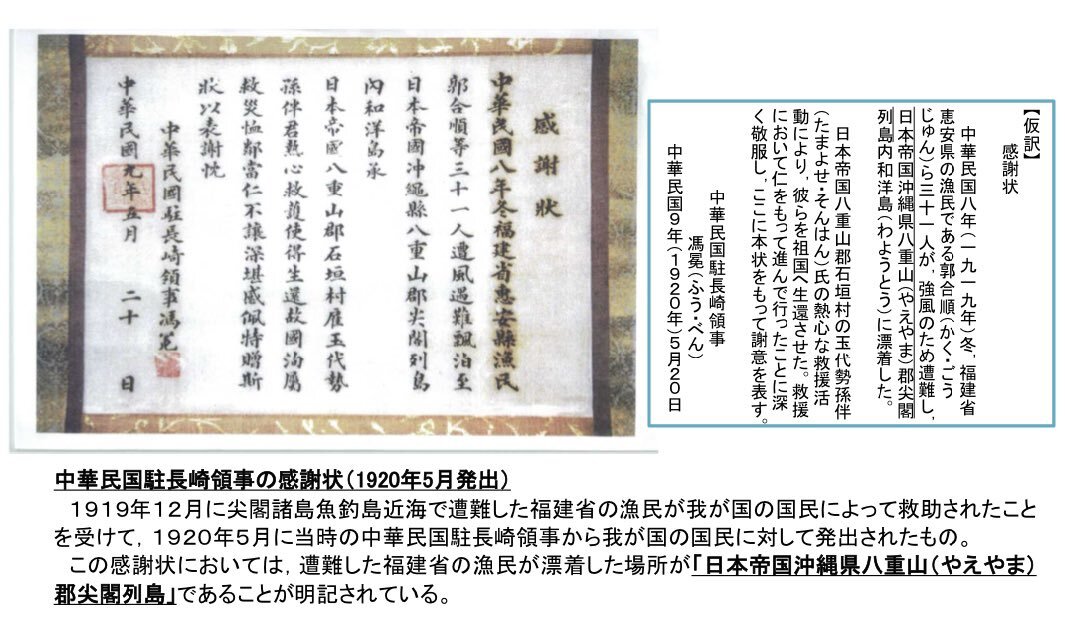 感謝狀
中華民國八年冬福建省惠安縣漁民
郭合順等三十一人遭風遇難飄泊至
日本帝國沖繩縣八重山郡尖閣列島
內和洋島承
日本帝國八重山郡石垣村雇玉代勢
孫伴君熱心救護使得生還故國洵屬
救災恤鄰當仁不讓深堪感佩特贈斯
狀以表謝忱
中華民國駐長崎領事馮冕
中華民國九年五月 二十 日
【仮訳】
感謝状
中華民国八年(一九一九年)冬,福建省
恵安県の漁民である郭合順(かく・ごう
じゅん)ら三十一人が,強風のため遭難し,
日本帝国沖縄県八重山(やえやま)郡尖閣
列島内和洋島(わようとう)に漂着した。
日本帝国八重山郡石垣村の玉代勢孫伴
(たまよせ・そんはん)氏の熱心な救援活
動により,彼らを祖国へ生還させた。救援
において仁をもって進んで行ったことに深
く敬服し,ここに本状をもって謝意を表す。
中華民国駐長崎領事
馮冕(ふう・べん)
中華民国9年(1920年)5月20日
中華民国駐長崎領事の感謝状(1920年5月発出)
1919年12月に尖閣諸島魚釣島近海で遭難した福建省の漁民が我が国の国民によって救助されたこと
を受けて,1920年5月に当時の中華民国駐長崎領事から我が国の国民に対して発出されたもの。
この感謝状においては,遭難した福建省の漁民が漂着した場所が「日本帝国沖縄県八重山(やえやま)
郡尖閣列島」であることが明記されている。